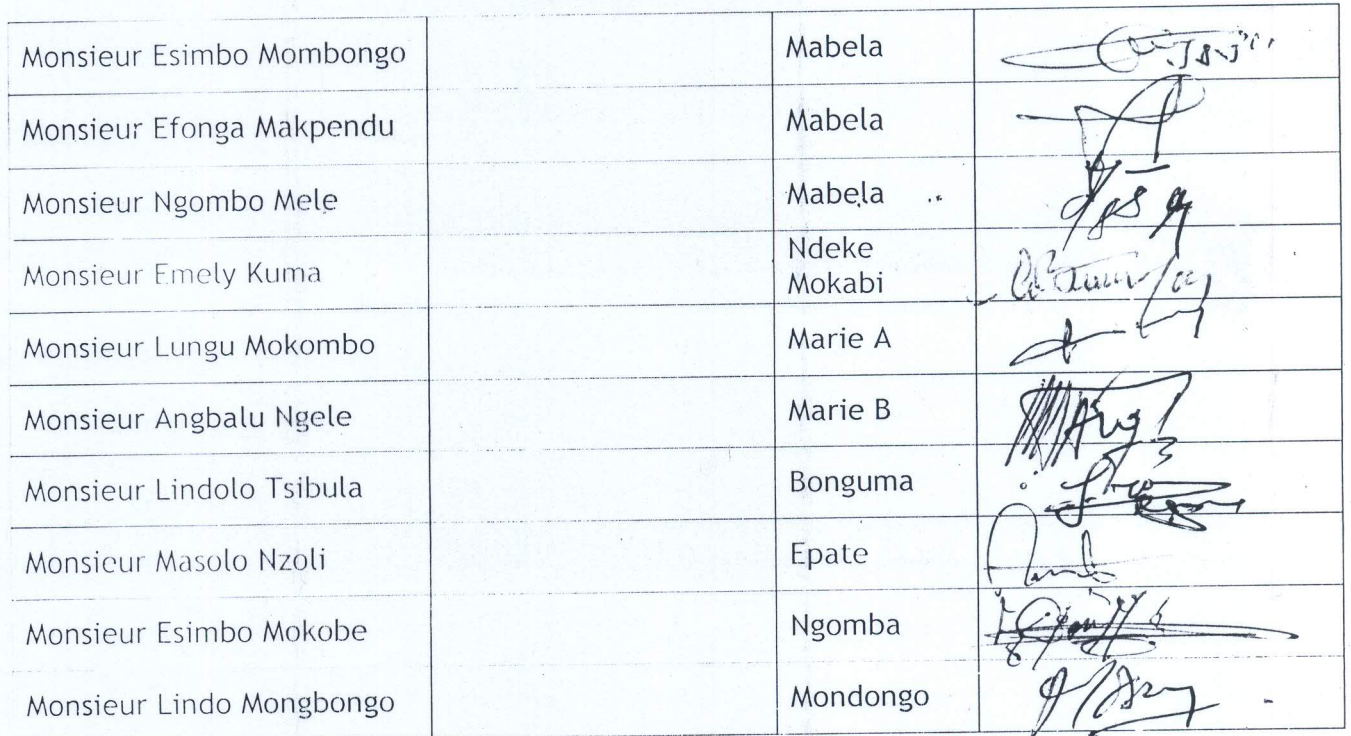 Monsieur Esimbo Mombongo Mabela
Monsieur Efonga Makpendu Mabela
Monsieur Ngombo Mele Mabela
Monsieur Emely Kuma Ndeke
Mokabi
Monsieur Lungu Mokombo Marie A
Monsieur Angbalu Ngele Marie B
Monsieur Lindolo Tsibula Bonguma
Monsieur Masolo Nzoli Epate
Monsieur Esimbo Mokobe Ngomba
Monsieur Lindo Mongbongo Mondongo